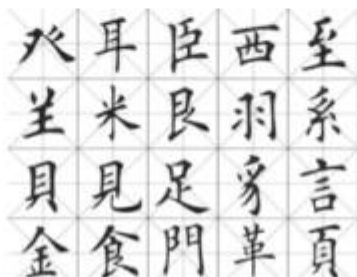 癶耳臣西至
𦍌米艮羽系
貝見足豸言
金食門革頁